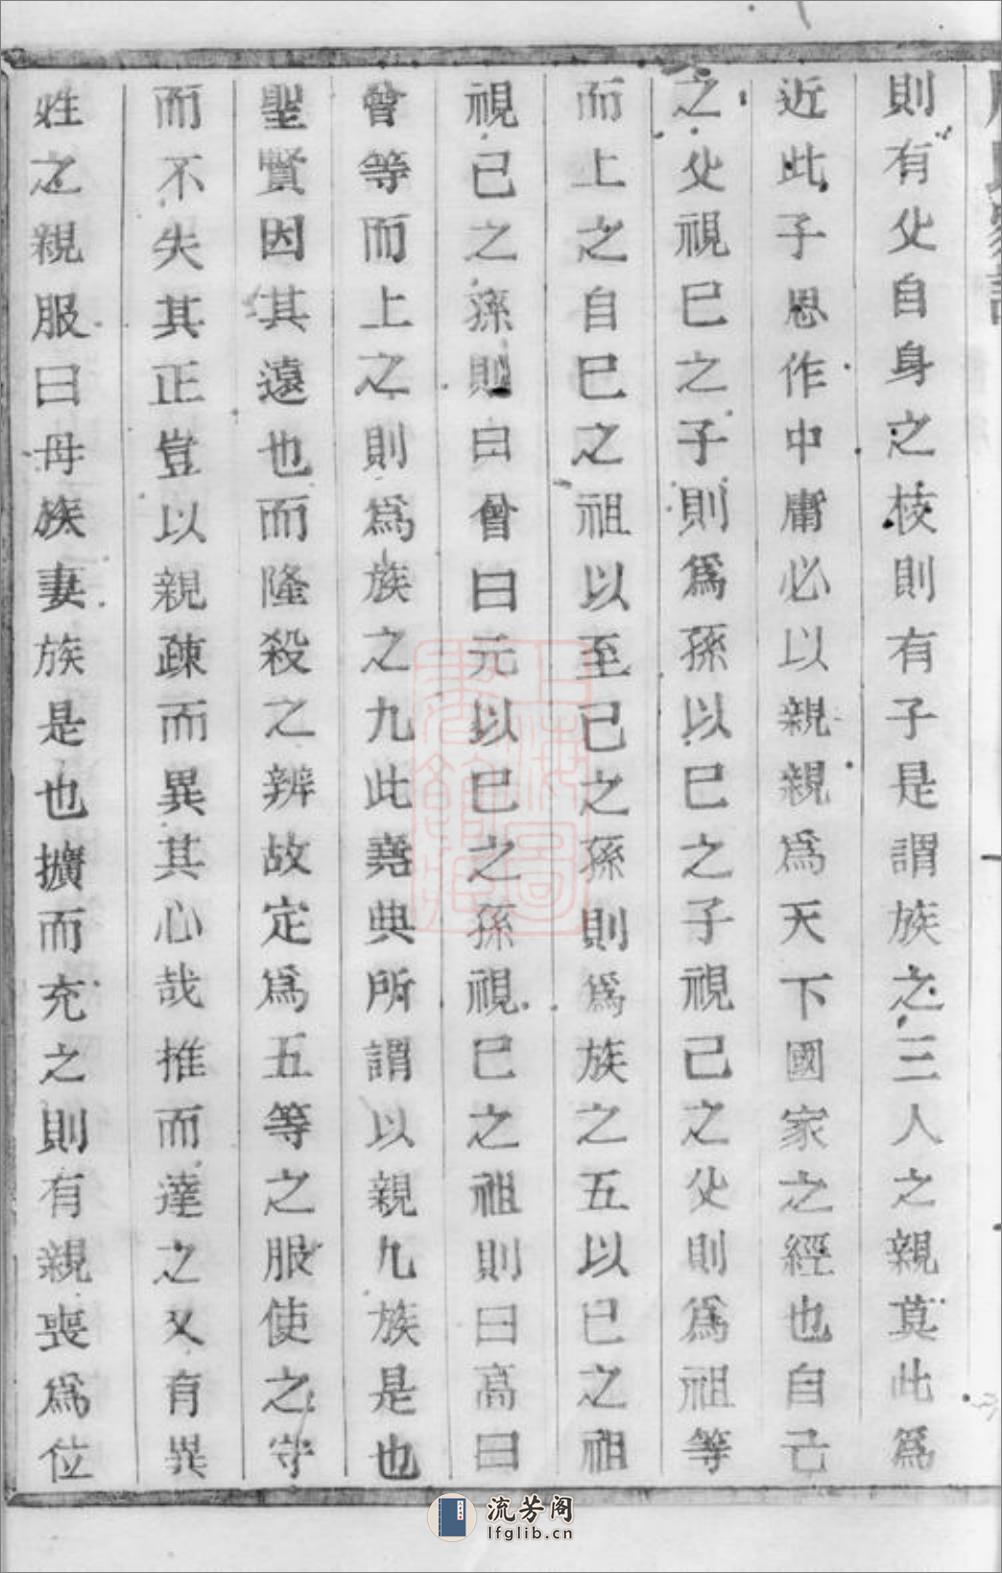 則有父自身之枝則有子是謂族之三人之親莫此爲
近此子思作中庸必以親親爲天下國家之經也自己
之父視巳之子則爲孫以巳之子視己之父則爲祖等
而上之自巳之祖以至己之孫則爲族之五以巳之祖
視已之孫則曰曾曰元以巳之孫視巳之祖則曰高曰
曾等而上之則爲族之九此堯典所謂以親九族是也
聖賢因其遠也而隆殺之辨故定爲五等之服使之守
而不失其正豈以親疎而異其心哉推而達之又有異
姓之親服曰母族妻族是也擴而充之則有親喪爲位
流芳阁
lfglib.cn